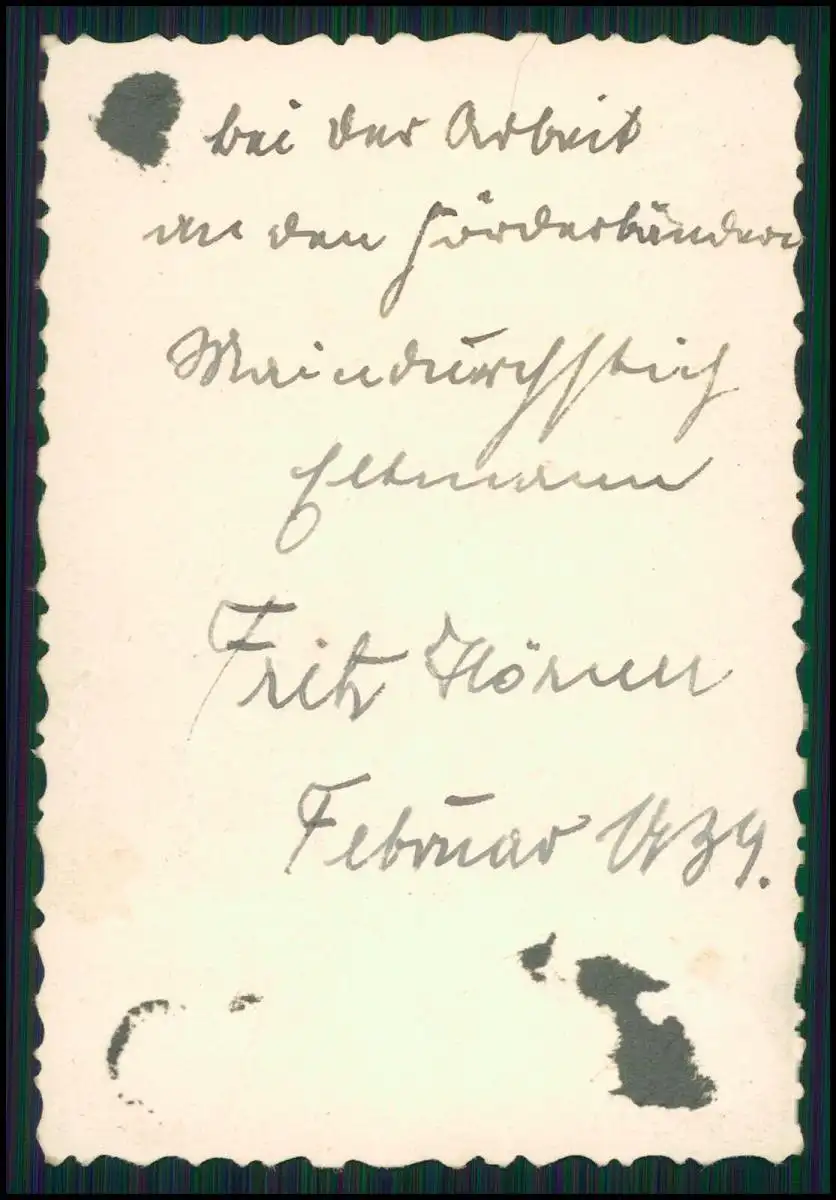 bei der Arbeit
an den Förderbändern
Maindurchstich
Eltmann
Fritz
Februar 1939.